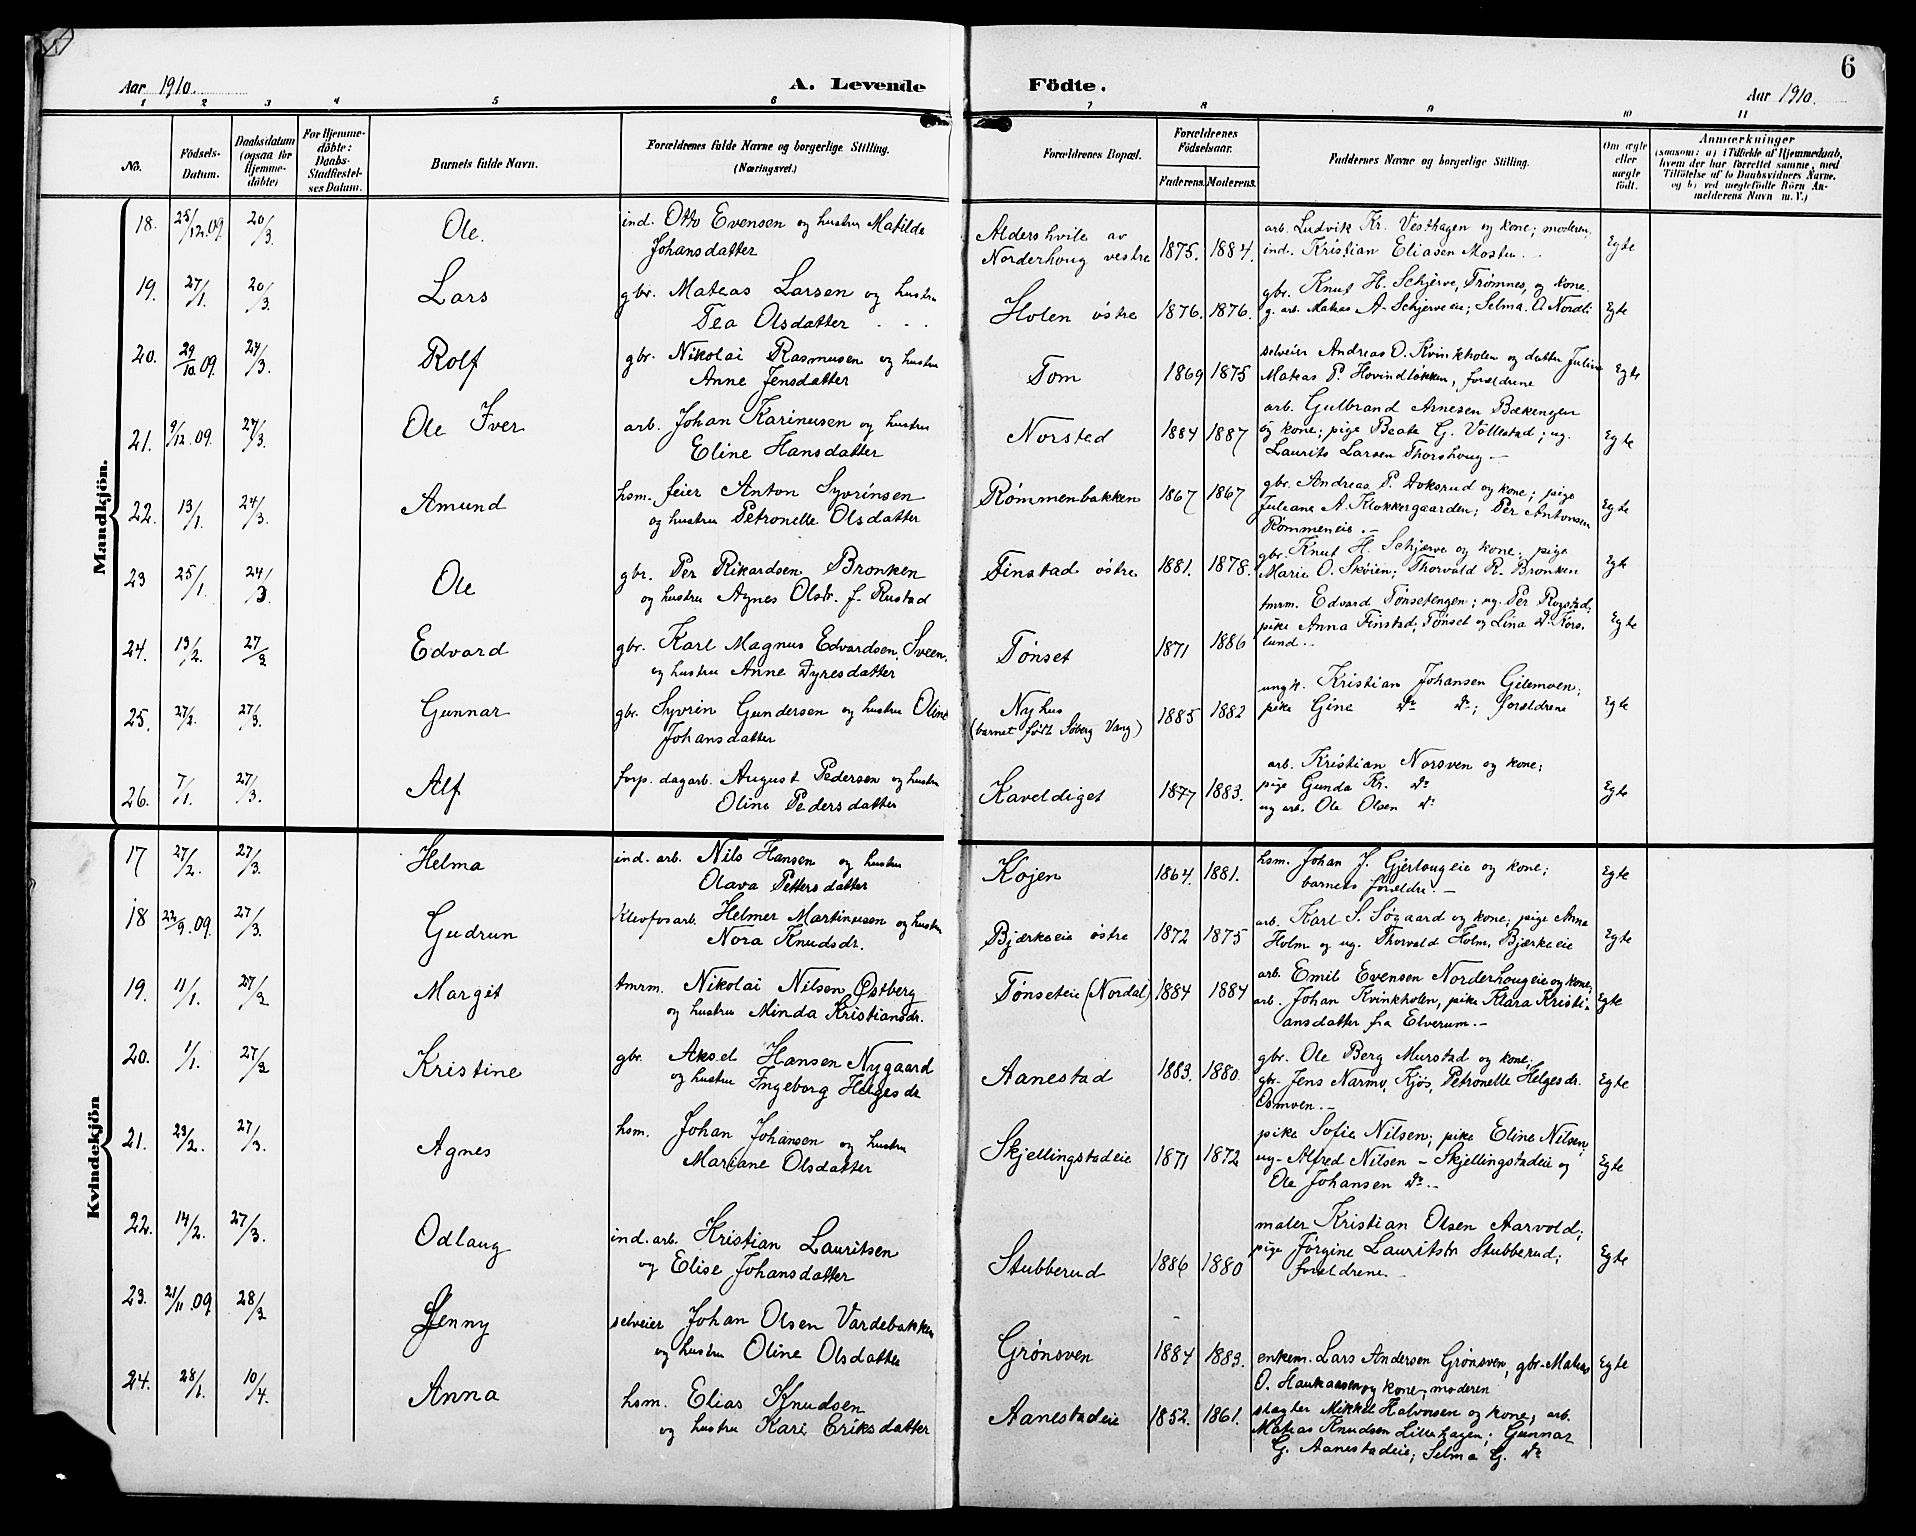 Aar 1910. A. Levende Födte. Aar 1910. 6
1 2 3 4 5 6 7 8 9 10 11
No. Födsels-Datum. Daabsdatum (ogsaa for Hjemmedöbte) For Hjemmedöbte: Daabs-Stadfæstelses Datum. Barnets fulde Navn. Forældrenes fulde Navne og borgerlige Stilling. (Næringsvei.) Forældrenes Bopæl. Forældrenes Födselsaar. Faderens. Moderens. Faddernes Navne og borgerlige Stilling. Om ægte eller uægte födt. Anmærkninger (saasom: a) i Tilfælde af Hjemmedaab, hvem der har forrettet samme, med Tilföielse af to Daabsvidners Navne, og b) ved uægtefödte Börn Anmelderens Navn m. V.)
Mandkjön.
18. 25/12.09. 20/3. Ole. ind. Otto Evensen og hustru Matilde Johansdatter Aldershvile av Norderhoug vestre 1875. 1884. arb. Ludvik Kr. Vesthagen og kone; moderen; ind. Kristian Eliasen Mosten. - Egte
19. 27/1. 20/3. Lars gbr. Mateas Larsen og hustru Tea Olsdatter Holen østre 1876. 1876. gbr. Knut H. Schjerve, Trømnes, og kone. g. arb. Matias A. Schjerveeie; Selma O. Nordli Egte
20. 29/10 09. 24/3. Rolf gbr. Nikolai Rasmusen og hustru Anne Jensdatter Tom 1869 1875 selveier Andreas O. Kvinkholen og datter Juline Mateas P. Hovindløkken, forældrene Egte
21. 9/12.09. 27/3. Ole Iver arb. Johan Karinusen og hustru Eline Hansdatter Norsted 1884 1887 arb. Gulbrand Arnesen Bækengen og kone; pige Beate G. Vollestad; ug. Laurits Larsen Thorshoug - Egte
22. 13/1. 24/3. Amund hsm. feier Anton Syvrinsen og hustru Petronelle Olsdatter Rømmenbakken 1867 1867 gbr. Andreas P. Doksrud og kone; pige Juliane A. Klokkergaarden; Per Antonsen Rømmeneie. - Egte
23 25/1. 24/3. Ole gbr. Per Rikardsen Bronken og hustru Agnes Olsdr. f. Rustad Finstad østre 1881. 1878. gbr. Knut H. Schjerve og kone; pige Marie O. Skøien; Thorvald R. Bronken Egte
24. 13/2. 27/3 Edvard gbr. Karl Magnus Edvardsen Sveen. og hustru Anne Dyresdatter Tønset 1871 1886 tmrm. Edvard Tønsetengen; ug. Per Rogstad; pike Anna Finstad, Tønset og Lina D. Korslund. - Egte
25. 27/2. 27/3. Gunnar gbr. Syvrin Gundersen og hustru Oline Johansdatter Nyhus (barnet født Søberg Vang) 1885 1882 ungk. Kristian Johansen Gilemoen; pike Gine do do; forældrene Egte
26. 7/1. 27/3. Alf forp. dagarb. August Pedersen og hustru Oline Pedersdatter Kaveldiget 1877 1883. arb. Kristian Norsven og kone; pige Gunda Kr. do ug arb. Ole Olsen do Egte
Kvindekjön
17 27/2. 27/3. Helma ind. arb. Nils Hansen og hustru Olava Pettersdatter Kojen 1864. 1881. hsm. Johan J. Gjerlougeie og kone; barnets foreldre. - Egte
18 22/9.09. 27/3. Gudrun Klevfosarb. Helmer Martinusen og hustru Nora Knudsdr. Bjærkeeie østre 1872 1875 arb. Karl S. Søgaard og kone; pige Anna Holm og ug. Thorvald Holm, Bjærkeeie Egte
19. 11/1. 27/3 Margit tmrm. Nikolai Nilsen Østberg og hustru Minda Kristiansdr. Tønseteie (Nordal) 1884 1884 arb. Emil Evensen Norderhougeie og kone; arb. Johan Kvinkholen, pike Klara Kristiansdatter fra Elverum. - Egte
20. 1/1. 27/3 Kristine gbr. Aksel Hansen Nygaard og hustru Ingeborg Helgesdr Aanestad 1883. 1880. gbr. Ole Berg Murstad og kone; gbr. Jens Narmo, Kjøs, Petronelle Helgesdr. Osmoen. - Egte
21. 23/2. 27/3. Agnes hsm. Johan Johansen og hustru Mariane Olsdatter Skjellingstadeie 1871 1872 pike Sofie Nilsen; pike Eline Nilsen; ug. Alfred Nilsen - Skjellingstadeie og Ole Johansen do. - Egte
22. 14/2. 27/3. Odlaug ind. arb. Kristian Lauritsen og Elise Johansdatter Stubberud 1886 1880 maler Kristian Olsen Aarvold; pige Jørgine Lauritsdr Stubberud; forældrene - Egte
23. 21/11.09. 28/3 Jenny selveier Johan Olsen Vardebakken og hustru Oline Olsdatter Grønsven 1884 1883. enkem. Lars Andersen Grønsven, gbr. Matias O. Haukaasen og kone; moderen Egte
24. 28/1. 10/4. Anna hsm. Elias Knudsen og hustru Kari Eriksdatter Aanestadeie 1852. 1861. slagter Mikkel Halvorsen og kone; arb. Matias Knudsen Lillehagen; Gunnar G. Aanestadeie; Selma G. do